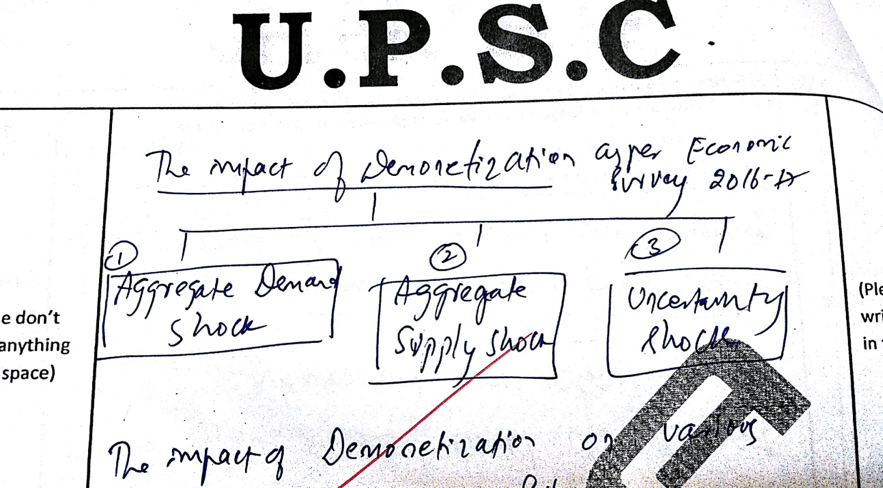 U.P.S.C
The impact of Demonetization as per Economic
Survey 2016-17
1
2
3
Aggregate Demand
Shock
Aggregate
Supply Shock
Uncertainty
Shock
e don't
anything
space)
(Ple
wri
in
The impact of Demonetization on various